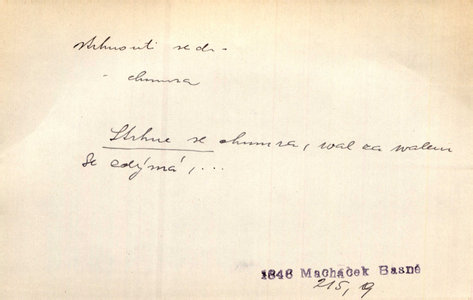 strhnouti se dk-
- chumra
Strhne se chumra, wal za walem
se zdýmá,...
1846 Macháček Basně
215, 9